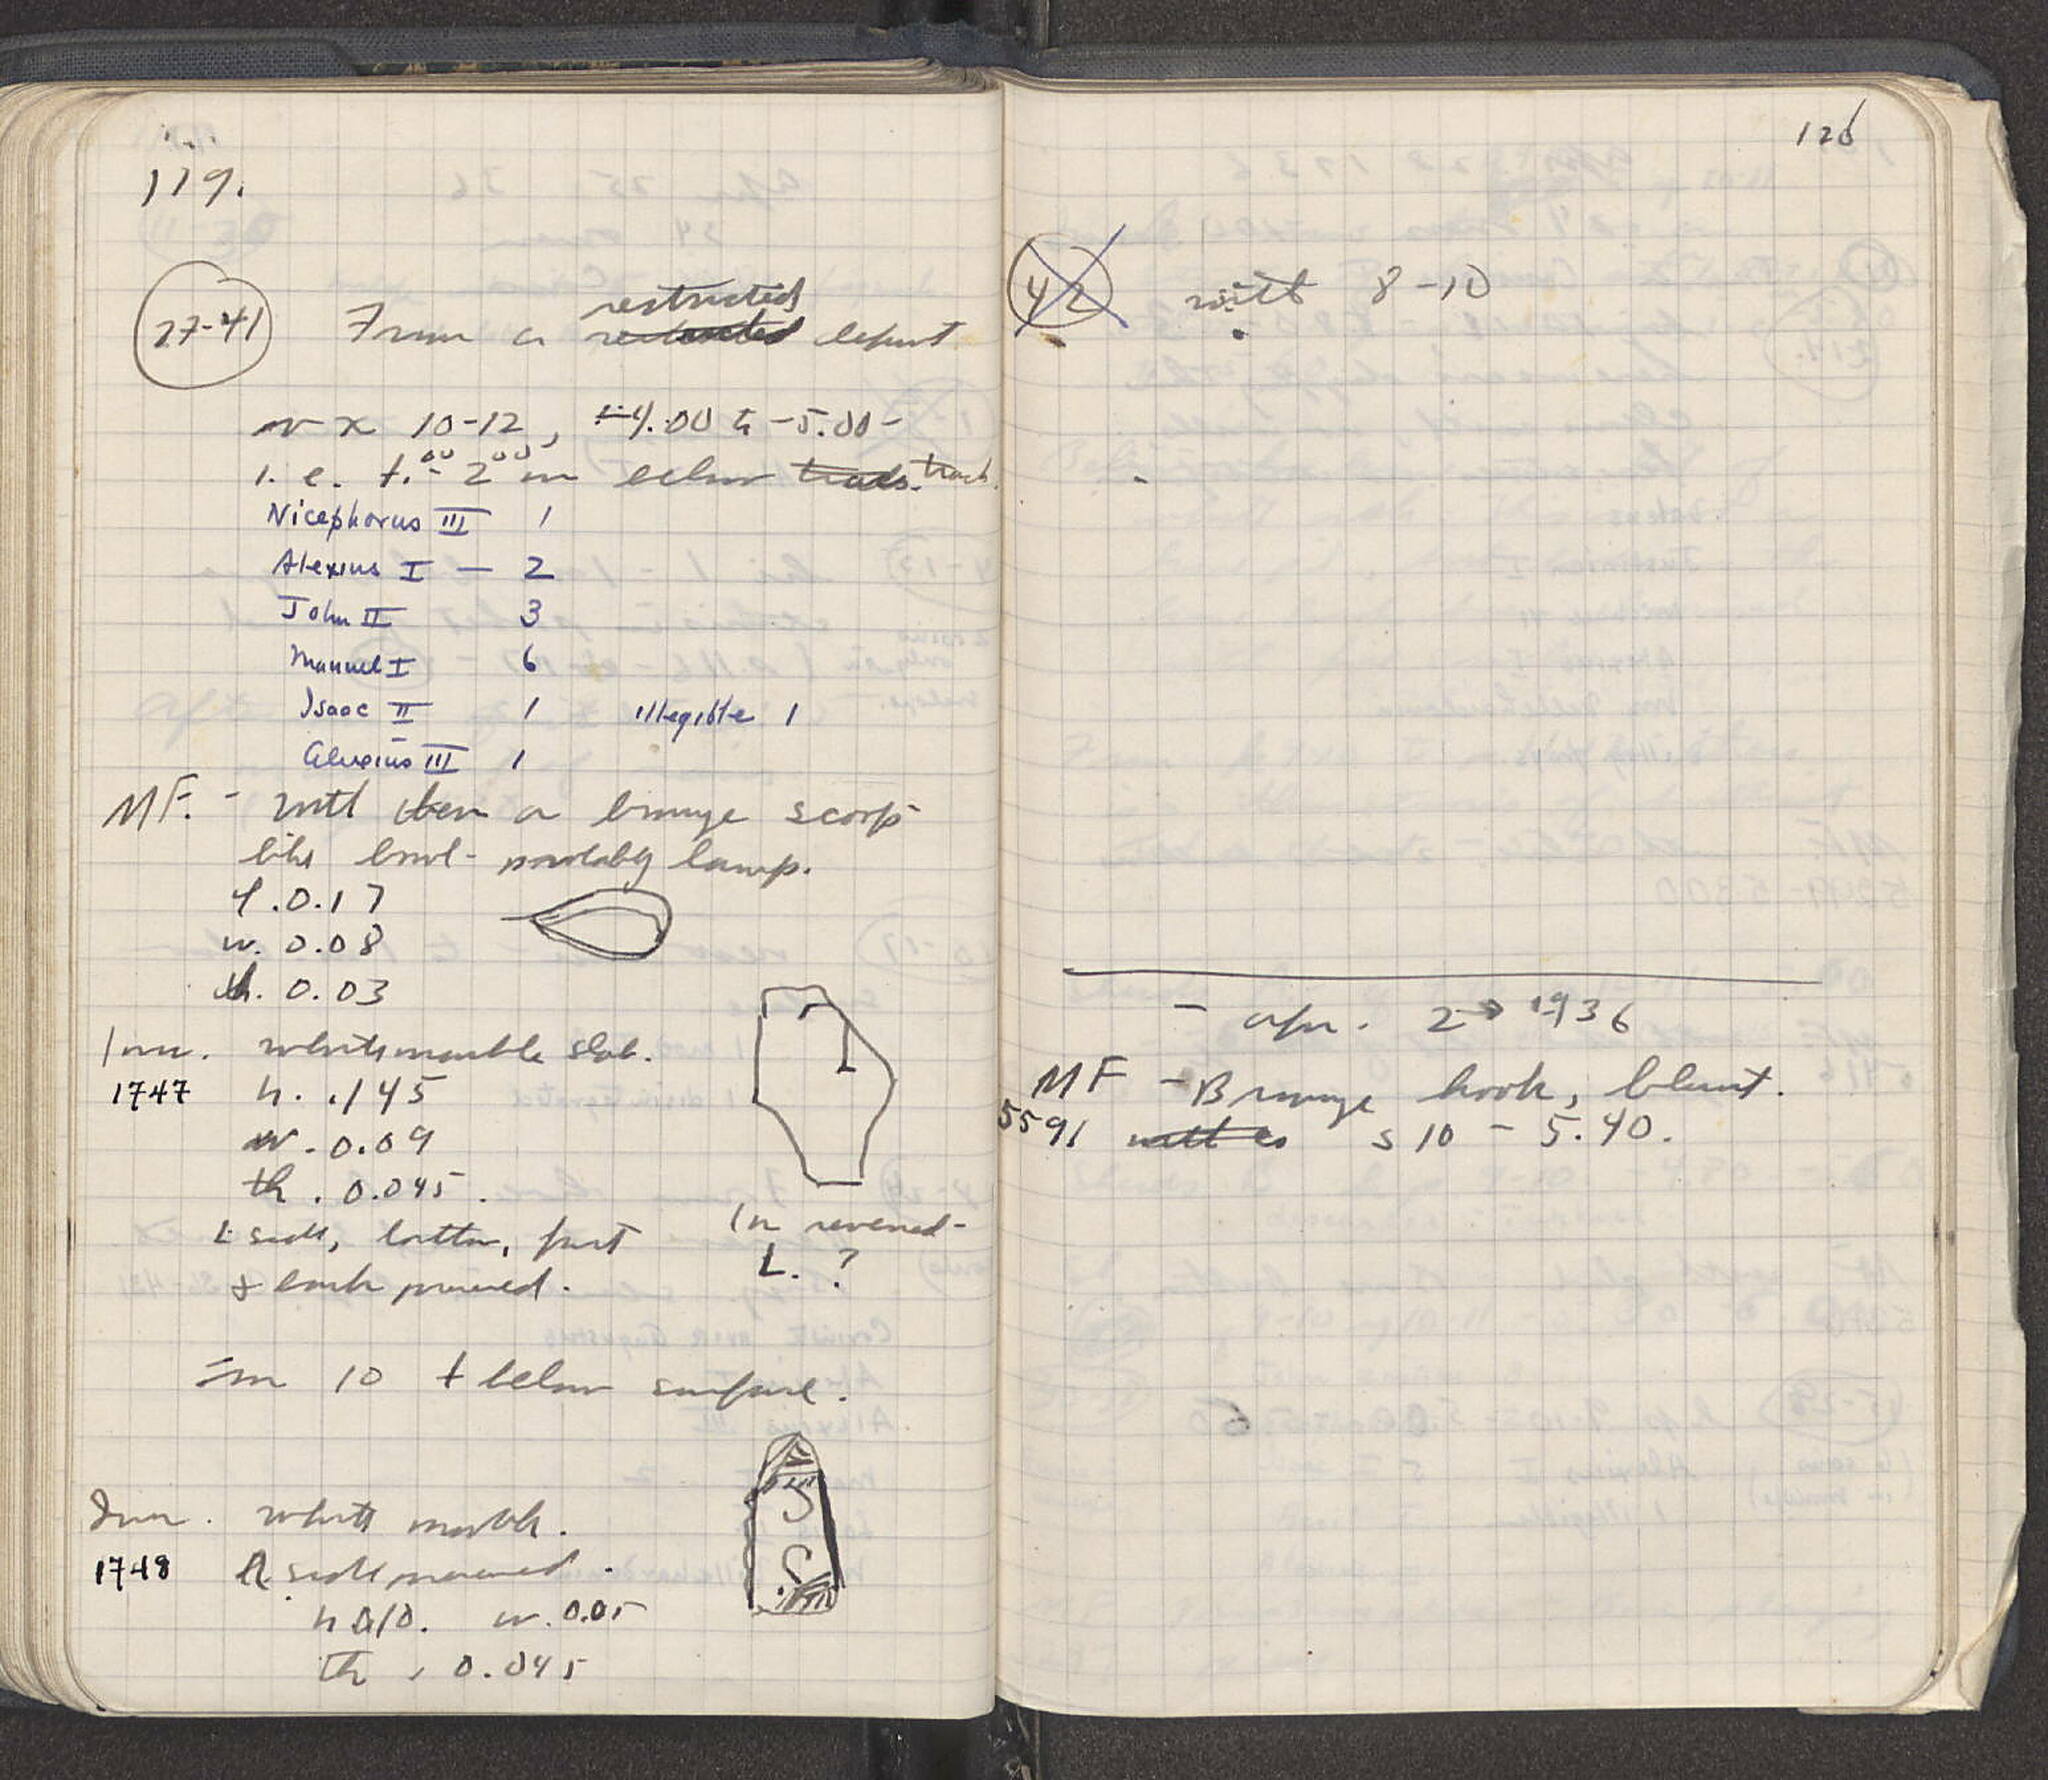 119.
27-41 From a restricted deposit
in x 10-12, -4.00 to -5.00-
i.e. 1.00 - 2.00 m below track.
Nicephorus III 1
Alexius I — 2
John II 3
Manuel I 6
Isaac II 1 illegible 1
Alexius III 1
MF. - with them a bronze scoop
like bowl - probably lamp.
l. 0.17
w. 0.08
th. 0.03
Inv. white marble slab.
1747 h. .145
w. 0.09
th. 0.045.
L side, bottom, part
& back preserved.
In reversed -
L. ?
Fm 10 + below surface.
Inv. white marble.
1748 R side preserved.
h 0.10. w. 0.05
th. 0.045
120
42 with 8-10
- Apr. 2 1936
MF - Bronze hook, blunt.
5591 S 10 - 5.40.